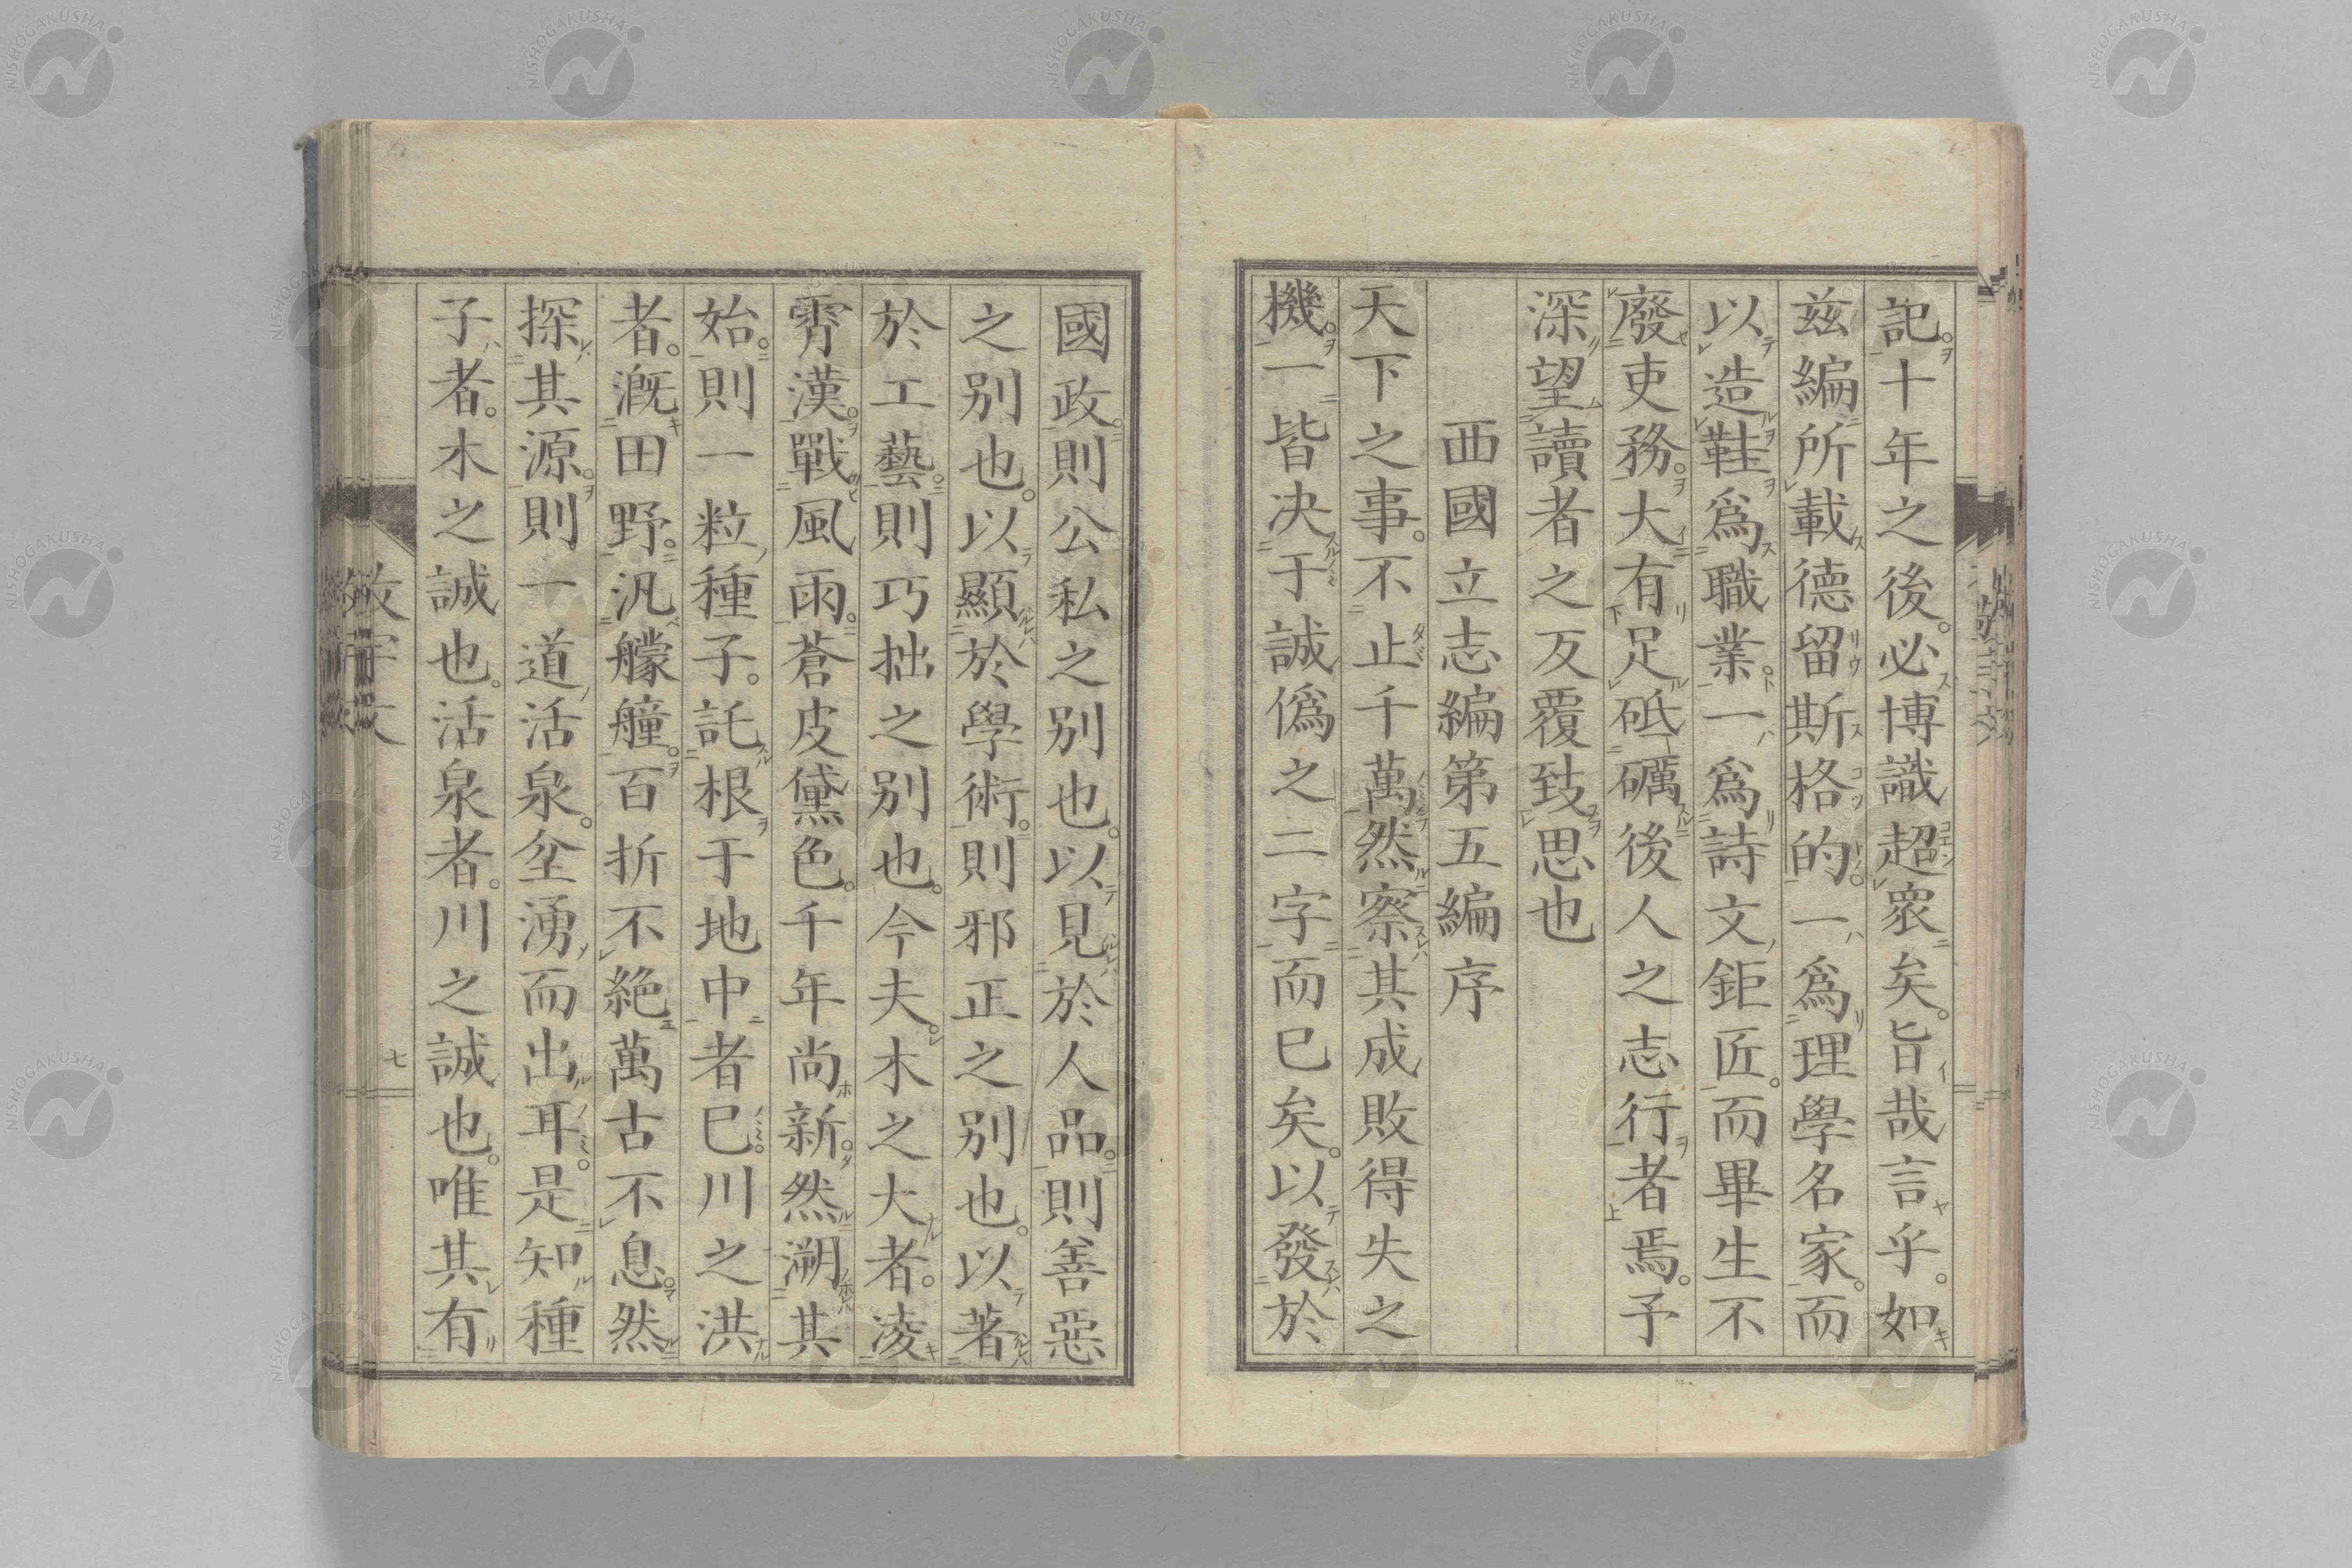 記十年之後。必博識超衆矣。旨哉言乎。如
兹編所載德留斯格的一爲理學名家。而
以造鞋爲職業。一爲詩文鉅匠。而畢生不
廢吏務。大有足砥礪後人之志行者焉。予
深望讀者之反覆致思也
西國立志編第五編序
天下之事。不止千萬然察其成敗得失之
機。一皆决于誠僞之二字而已矣。以發於
國政。則公私之別也。以見於人品。則善惡
之別也。以顯於學術。則邪正之別也。以著
於工藝。則巧拙之別也。今夫木之大者。凌
霄漢。戰風雨。蒼皮黛色。千年尚新。然溯其
始。則一粒種子。託根于地中者已。川之洪
者。漑田野。汎艨艟。百折不絶萬古不息。然
探其源。則一道活泉。坌湧而出耳。是知種
子者。木之誠也。活泉者。川之誠也。唯其有
七
NISHOGAKUSHA